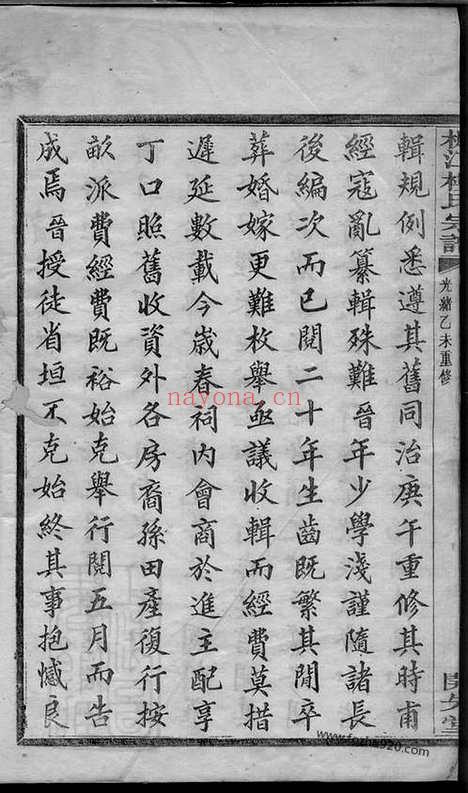 輯規例悉遵其舊同治庚午重修其時甫
經寇亂纂輯殊難晉年少學淺謹隨諸長
後編次而已閱二十年生齒既繁其閒卒
葬婚嫁更難枚舉亟議收輯而經費莫措
遲延數載今歲春祠內會商於進主配享
丁口照舊收資外各房裔孫田產復行按
畝派費經費既裕始克舉行閱五月而告
成焉晉授徒省垣不克始終其事抱憾良
光緒乙未重修
nayona.cn
www.fozhu920.com